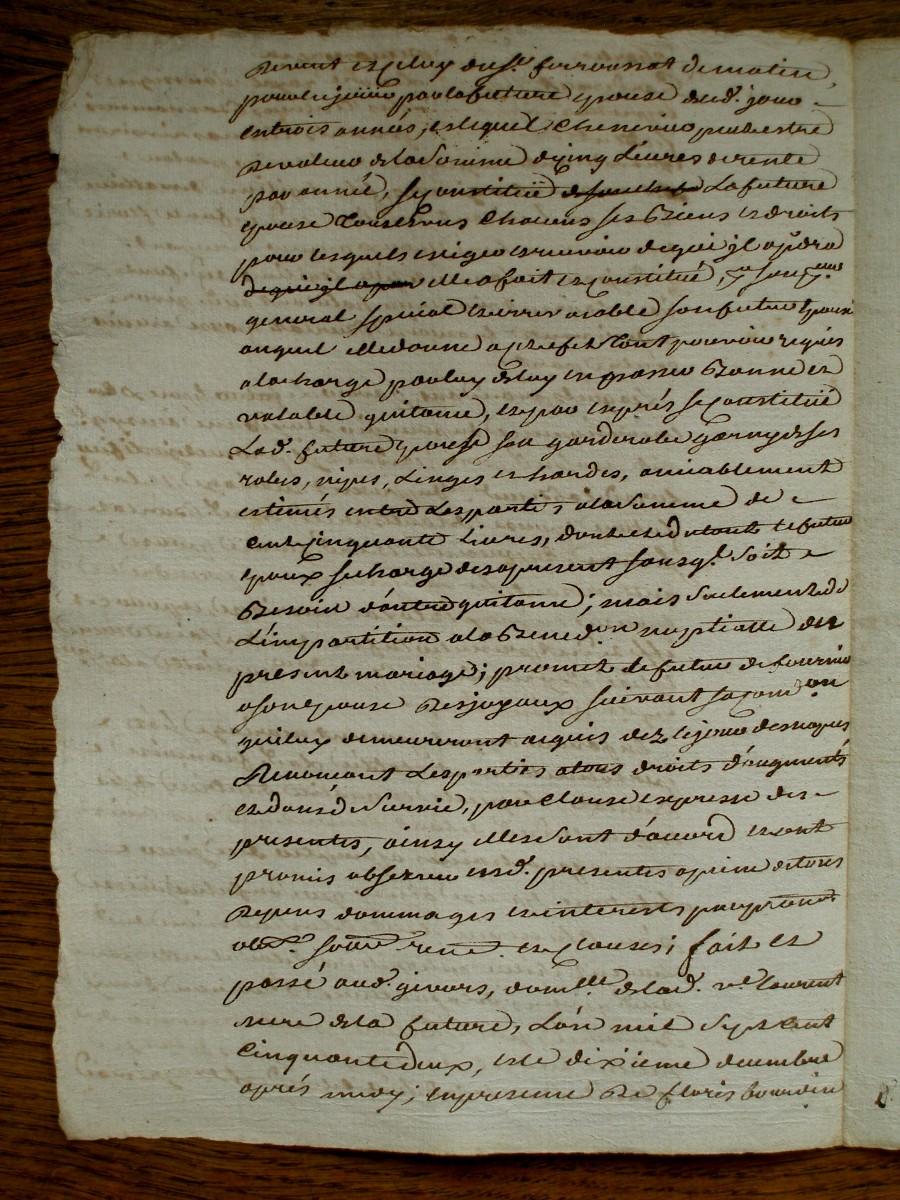 devant et celuy du sr. ferroussat de matin
pour le jouir par la future epouse dud. jour
en trois années, et lequel chenevier peut estre
de valeur de la somme de cinq livres de rente
par année, se constitüé La future
epouse tous et uns chacuns ses biens et droits
pour lesquels exiger et recevoir de qui il apdra
de qui il apar elle a fait et constitué, pr son pror
general special et irrevocable son futur epoux
auquel elle donne a cet effet tout pouvoir requis
a la charge par luy de luy en passer bonne et
valable quitance, et par exprés se constitüé
Lad. future epouse sa garderobe garnye de ses
robes, nipes, Linges et hardes, amiablement
estimés entre Les parties a la somme de
cent cinquante Livres, dont et de tout le futur
epoux se charge des a present sans ql. soit
besoin d'autre quitance; mais seulement de
L'impartition de la bened.on nuptialle du
present mariage; promet le futur de fournir
a son epouse des joyaux suivant sa con.on
qui luy demeureront acquis dez le jour des nopces
Renoncant Les parties a tous droits d'augments
et dons de survie, par clause expresse des
presentes, ainsy elles sont d'accord et ont
promis observer cesd. presentes a peine de tous
depens dommages et interests par prom.
ob.on soum. renon. et clauses; fait et
passé aud. givors, domille. de lad. ve. Laurent
mere de la future, L'an mil sept cent
cinquante deux, et le dixieme decembre
aprés midy; en presence de floris bourdin